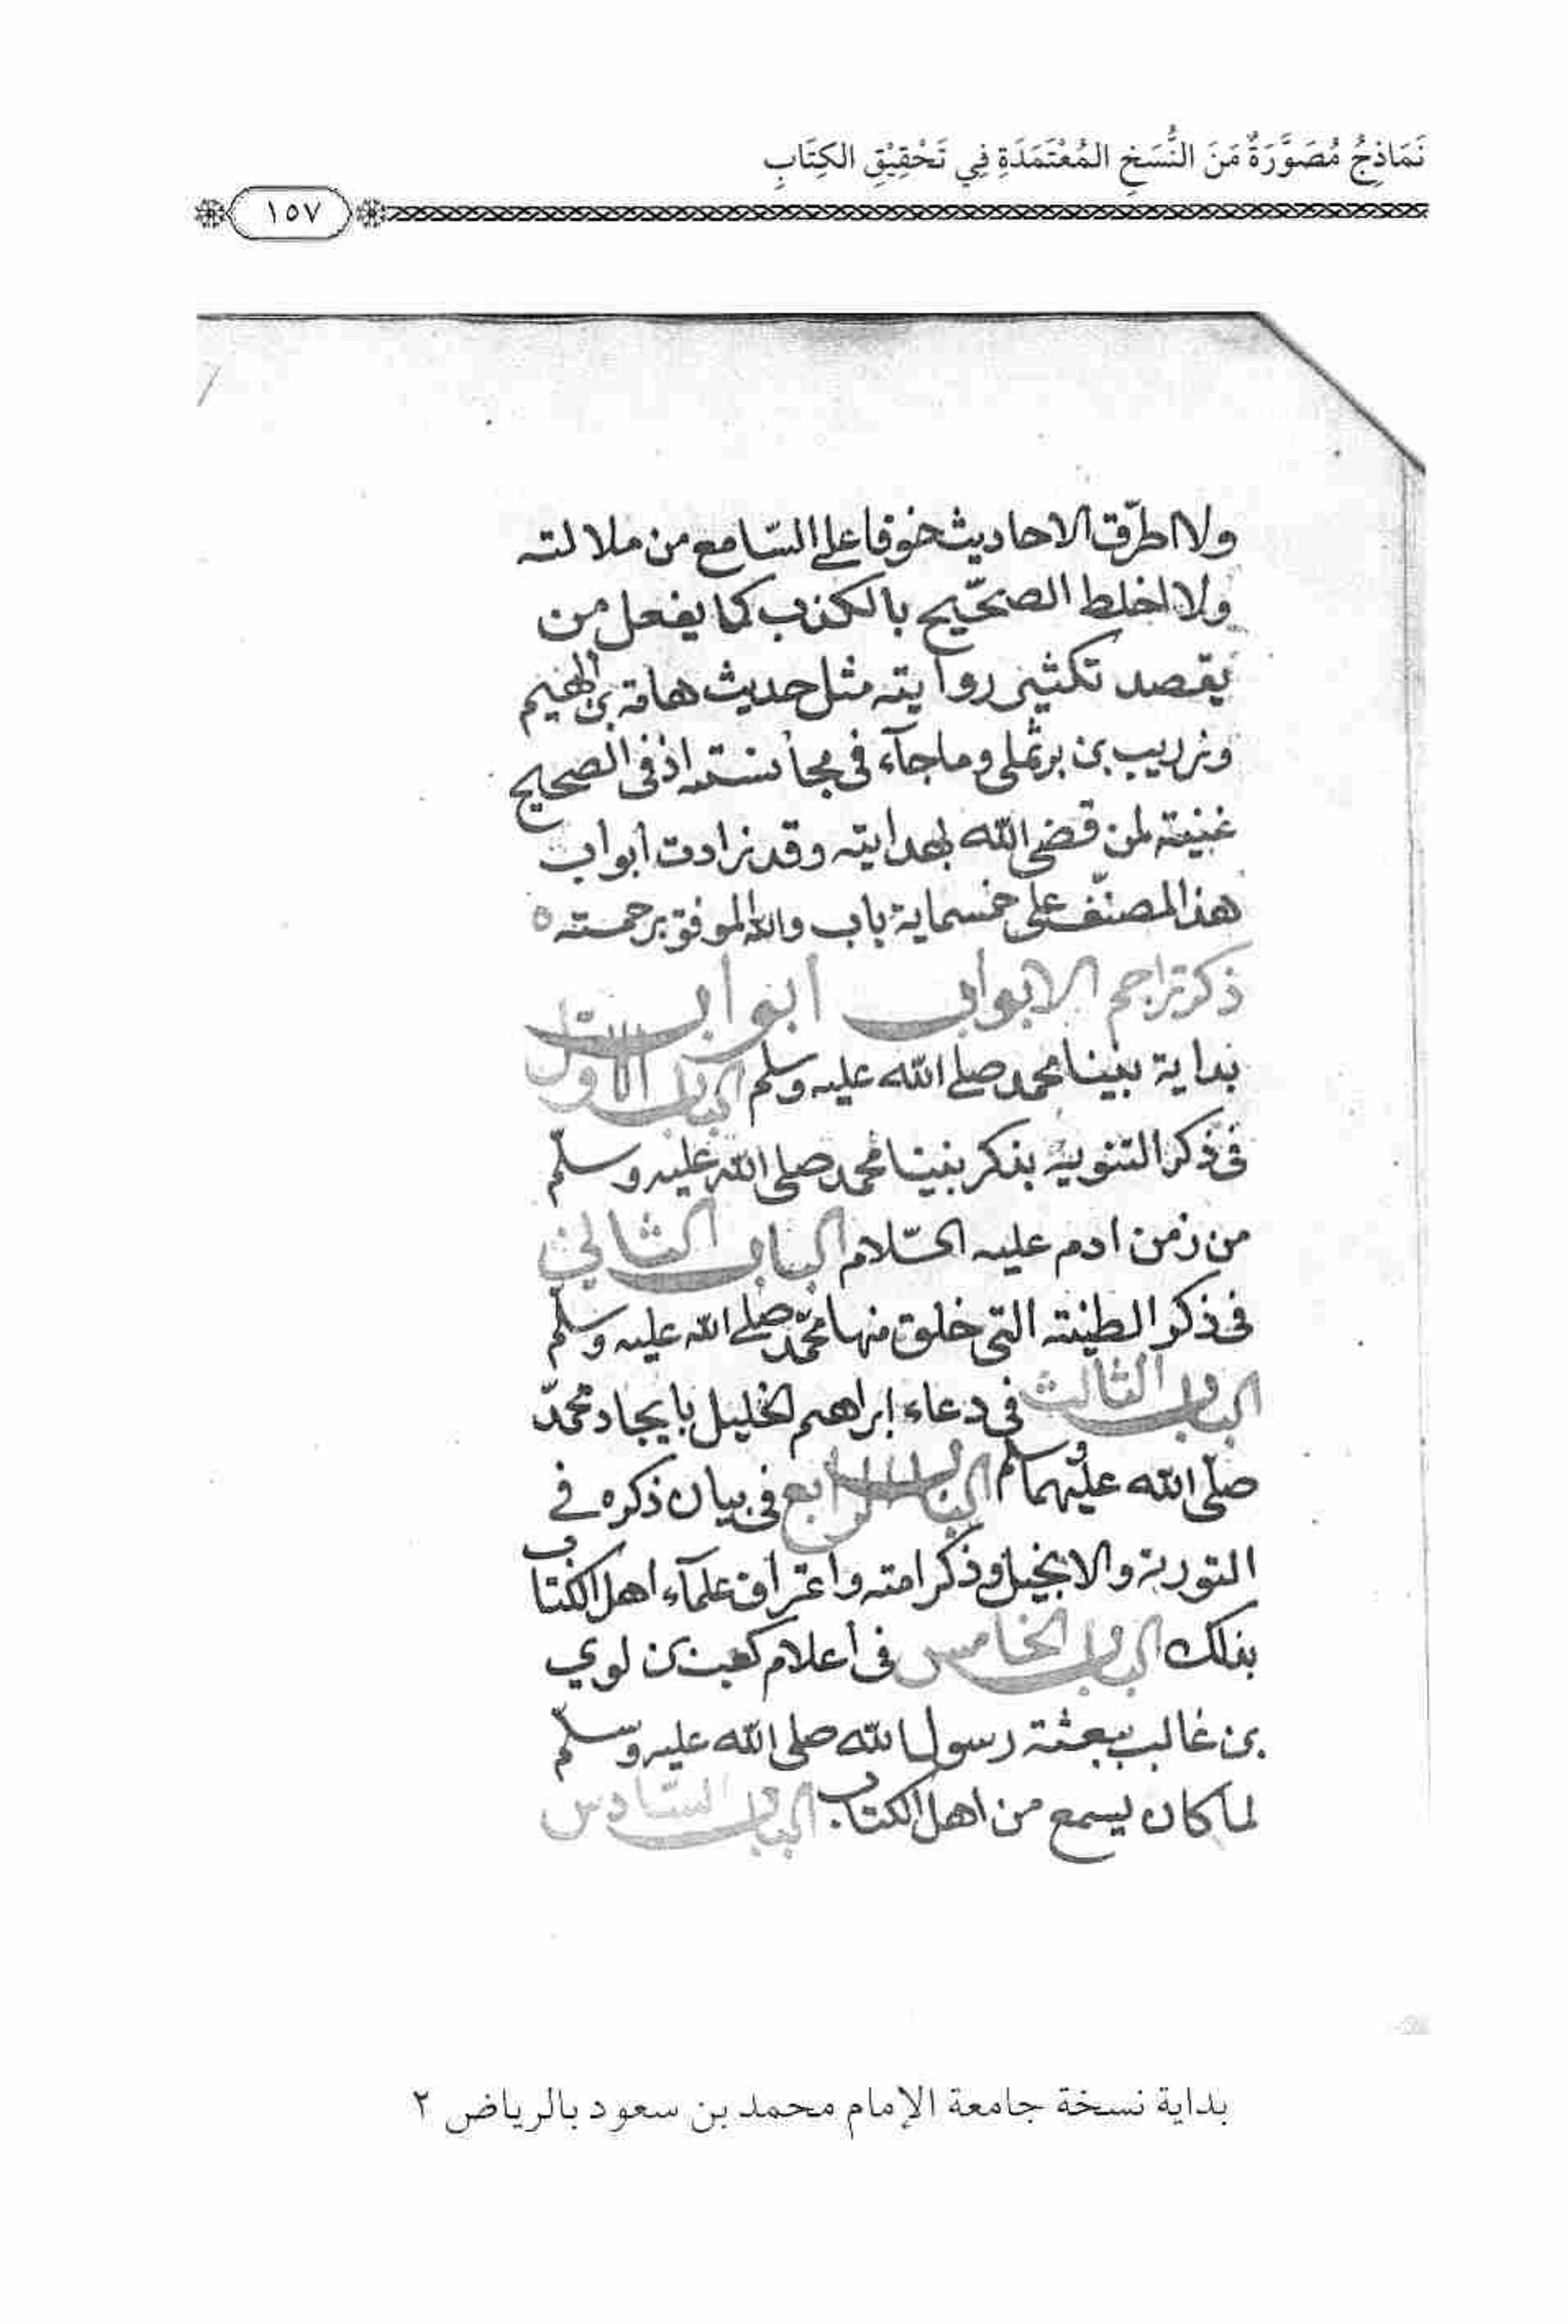 نَمَاذِجُ مُصَوَّرَةٌ مَنَ النُّسَخِ المُعْتَمَدَةِ فِي تَحْقِيْقِ الكِتَابِ
١٥٧
ولا اطرّق الاحاديث خوفا على السّامع من ملالته
ولا اخلط الصحّيح بالكذب كما يفعل من
يقصد تكثير روايته مثل حديث هامة بن الهيم
وزريب بن برثملى وما جآء فى مجانسته اذ فى الصحيح
غنية لمن قضى الله بهدايته وقد زادت أبواب
هذا المصنّف على خمسماية باب والله الموفق برحمته
ذكر تراجم الابواب أبواب
بداية نبينا محمد صلى الله عليه وسلم الباب الاول
فى ذكر التنويه بذكر نبينا محمد صلى الله عليه وسلّم
من زمن ادم عليه السّلام الباب الثانى
فى ذكر الطينة التى خلق منها محمّد صلى الله عليه وسلّم
الباب الثالث فى دعاء إبراهيم الخليل بايجاد محمدّ
صلّى الله عليهما وسلم الباب الرابع فى بيان ذكره فى
التورية والانجيل وذكر امته واعتراف علمآء اهل الكتاب
بذلك الباب الخامس فى أعلام كعب بن لوي
بن غالب ببعثة رسول الله صلى الله عليه وسلّم
لما كان يسمع من اهل الكتاب. الباب السّادس
بداية نسخة جامعة الإمام محمد بن سعود بالرياض ٢